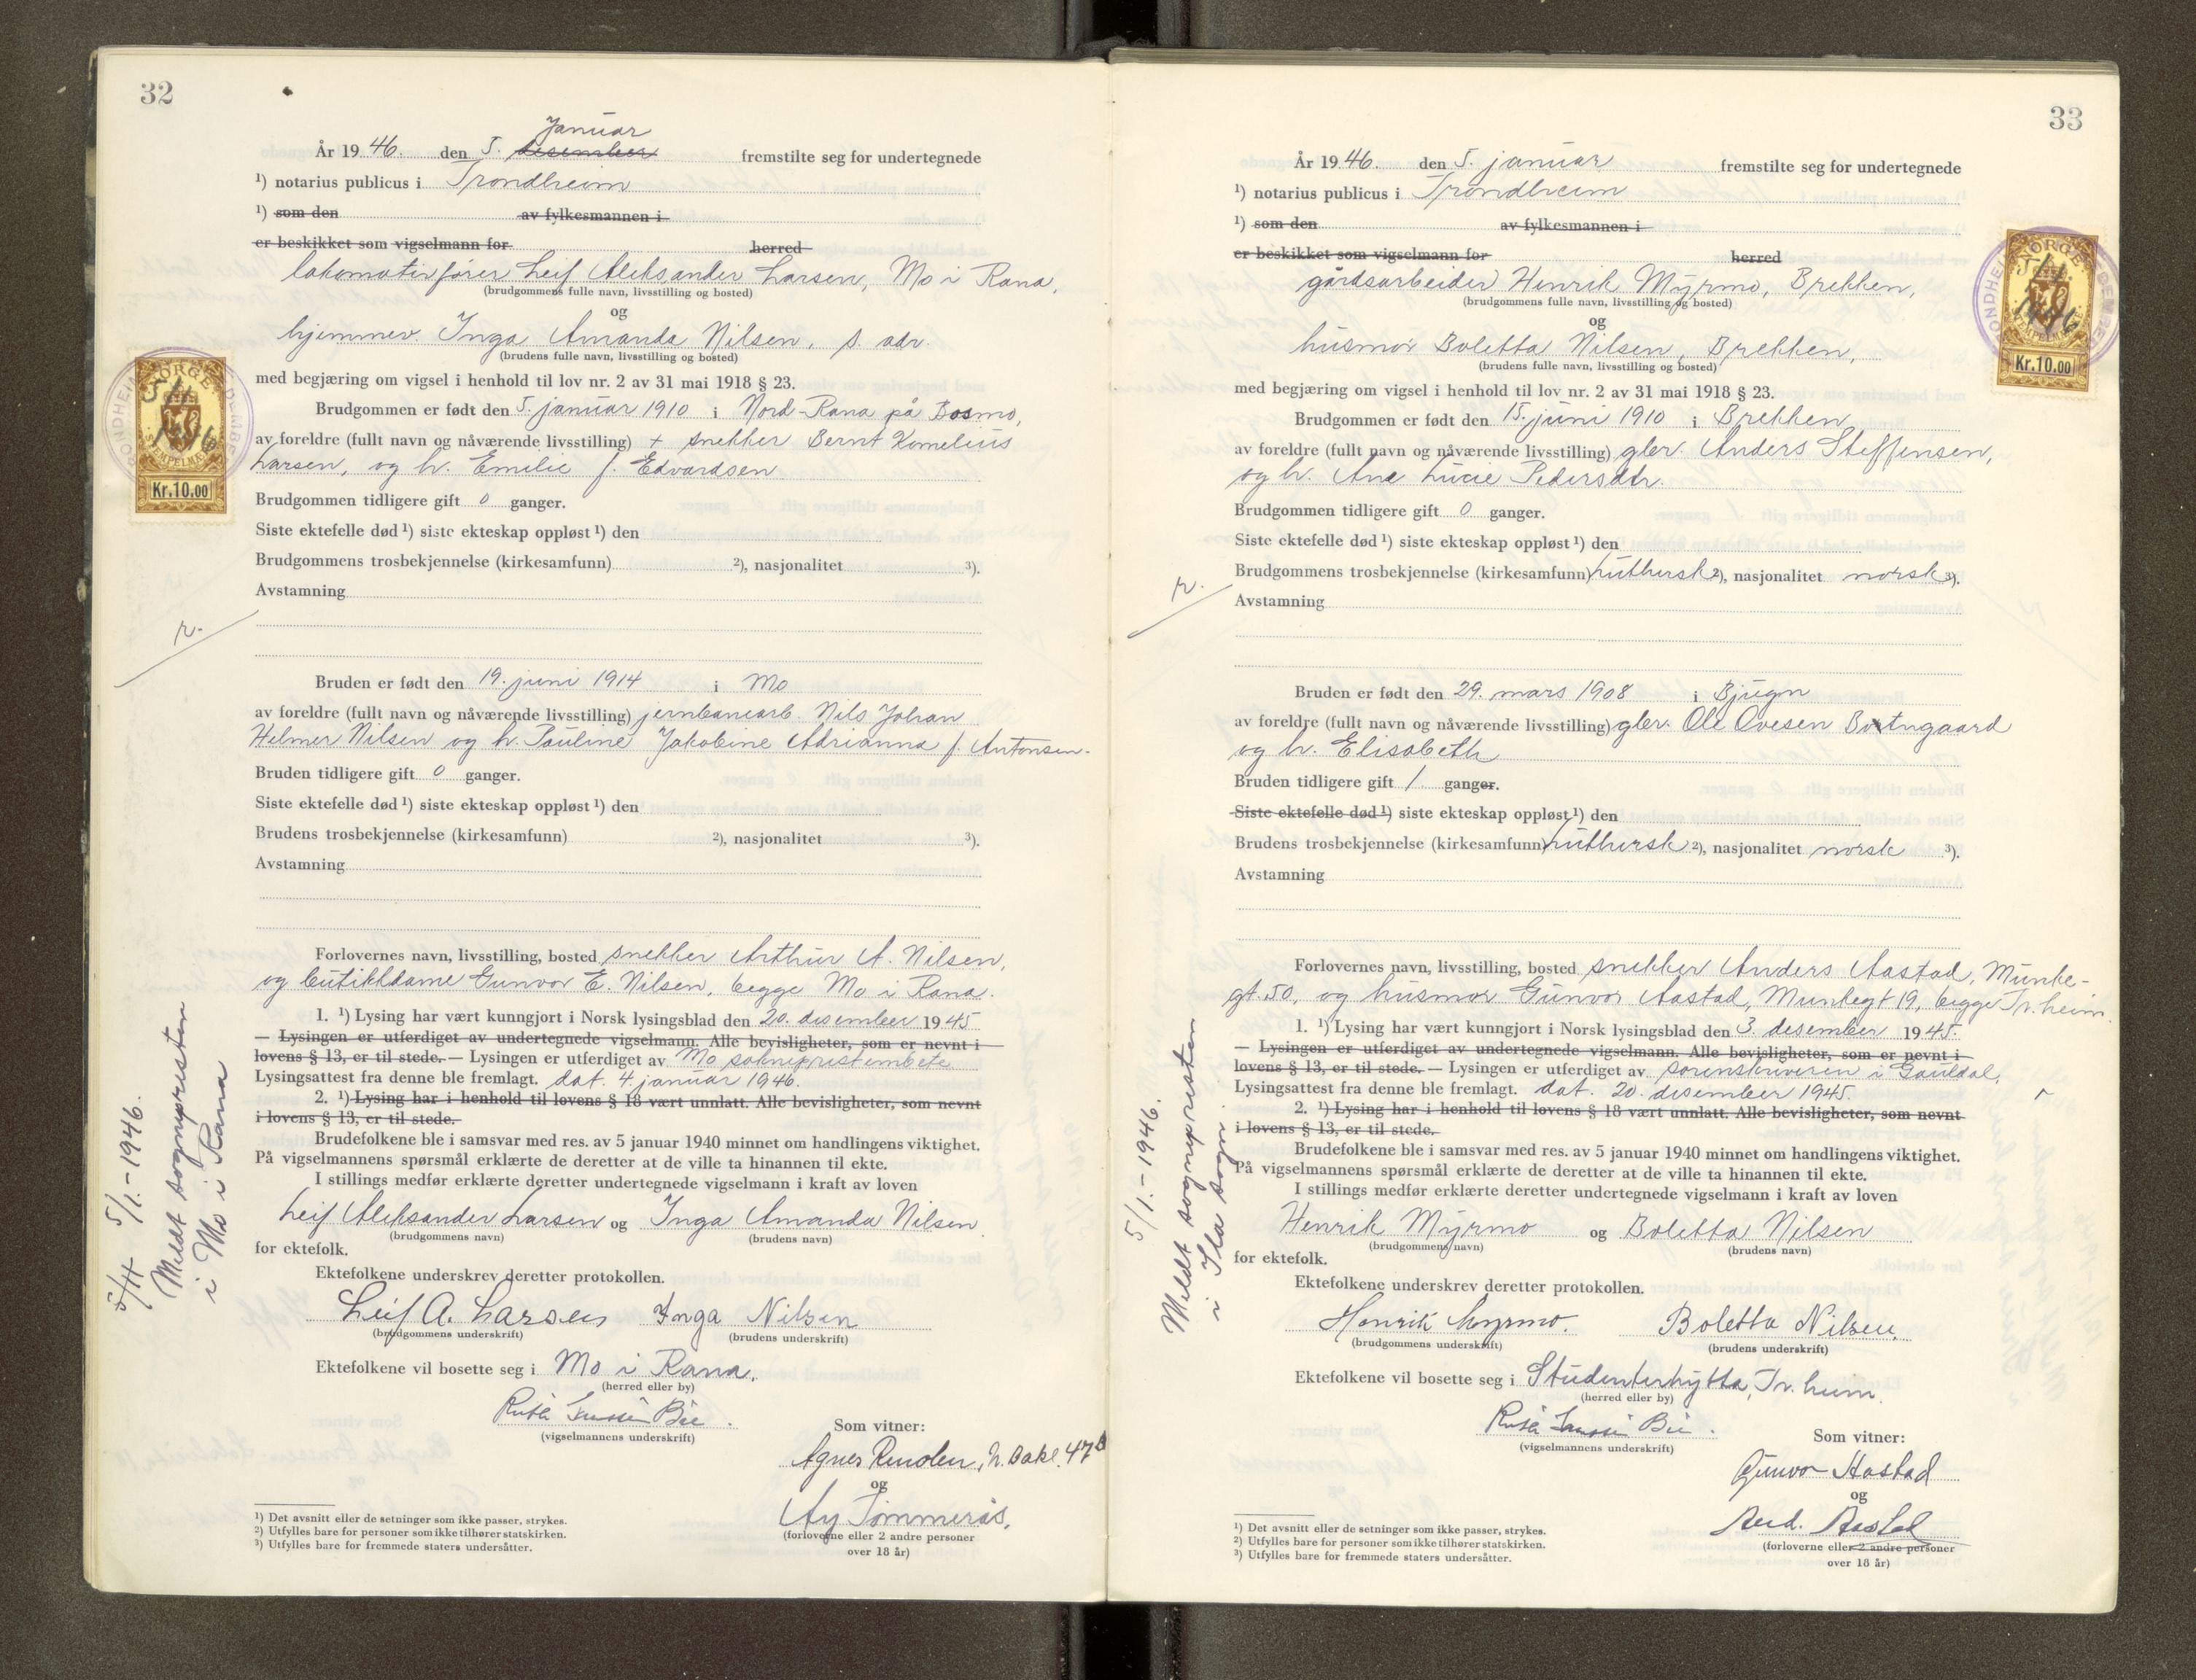 32
Januar
År 1946. den 5. desember fremstilte seg for undertegnede
¹) notarius publicus i Trondheim
¹) som den av fylkesmannen i
er beskikket som vigselmann for herred
lokomotivfører Leif Aleksander Larsen, Mo i Rana,
(brudgommens fulle navn, livsstilling og bosted)
og
hjemmev. Inga Amanda Nilsen, s. adr.
(brudens fulle navn, livsstilling og bosted)
med begjæring om vigsel i henhold til lov nr. 2 av 31 mai 1918 § 23.
Brudgommen er født den 5. januar 1910 i Nord-Rana på Bosmo,
av foreldre (fullt navn og nåværende livsstilling) + snekker Bernt Kornelius
Larsen, og h. Emilie f. Edvardsen
Brudgommen tidligere gift 0 ganger.
Siste ektefelle død ¹) siste ekteskap oppløst ¹) den
Brudgommens trosbekjennelse (kirkesamfunn) ²), nasjonalitet ³).
Avstamning
r.
Bruden er født den 19. juni 1914 i Mo
av foreldre (fullt navn og nåværende livsstilling) jernbanearb. Nils Johan
Helmer Nilsen og h. Pauline Jakobine Adrianna f. Antonsen.
Bruden tidligere gift 0 ganger.
Siste ektefelle død ¹) siste ekteskap oppløst ¹) den
Brudens trosbekjennelse (kirkesamfunn) ²), nasjonalitet ³).
Avstamning
Forlovernes navn, livsstilling, bosted snekker Arthur A. Nilsen,
og butikkdame Gunvor E. Nilsen, begge Mo i Rana.
1. ¹) Lysing har vært kunngjort i Norsk lysingsblad den 20. desember 1945
— Lysingen er utferdiget av undertegnede vigselmann. Alle bevisligheter, som er nevnt i
lovens § 13, er til stede. — Lysingen er utferdiget av Mo sokneprestembete
Lysingsattest fra denne ble fremlagt. dat. 4. januar 1946.
2. ¹) Lysing har i henhold til lovens § 18 vært unnlatt. Alle bevisligheter, som nevnt
i lovens § 13, er til stede.
Brudefolkene ble i samsvar med res. av 5 januar 1940 minnet om handlingens viktighet.
På vigselmannens spørsmål erklærte de deretter at de ville ta hinannen til ekte.
I stillings medfør erklærte deretter undertegnede vigselmann i kraft av loven
Leif Aleksander Larsen og Inga Amanda Nilsen
(brudgommens navn) (brudens navn)
for ektefolk.
Ektefolkene underskrev deretter protokollen.
Leif A. Larsen Inga Nilsen
(brudgommens underskrift) (brudens underskrift)
Ektefolkene vil bosette seg i Mo i Rana.
(herred eller by)
(vigselmannens underskrift)
Som vitner:
Agnes Renolen, N. Bakl. 47 B
og
Ag Tømmerås,
(forloverne eller 2 andre personer
over 18 år)
5/1.-1946.
Meldt sognepresten
i Mo i Rana
NORGE
STEMPELMERKE
Kr.10.00
¹) Det avsnitt eller de setninger som ikke passer, strykes.
²) Utfylles bare for personer som ikke tilhører statskirken.
³) Utfylles bare for fremmede staters undersåtter.
33
År 1946. den 5. januar fremstilte seg for undertegnede
¹) notarius publicus i Trondheim
¹) som den av fylkesmannen i
er beskikket som vigselmann for herred
gårdsarbeider Henrik Myrmo, Brekken,
(brudgommens fulle navn, livsstilling og bosted)
og
husmor Boletta Nilsen, Brekken,
(brudens fulle navn, livsstilling og bosted)
med begjæring om vigsel i henhold til lov nr. 2 av 31 mai 1918 § 23.
Brudgommen er født den 15. juni 1910 i Brekken
av foreldre (fullt navn og nåværende livsstilling) gbr. Anders Steffensen,
og h. Ane Lucie Pedersdtr.
Brudgommen tidligere gift 0 ganger.
Siste ektefelle død ¹) siste ekteskap oppløst ¹) den
Brudgommens trosbekjennelse (kirkesamfunn) luthersk ²), nasjonalitet norsk ³).
Avstamning
r.
Bruden er født den 29. mars 1908 i Bjugn
av foreldre (fullt navn og nåværende livsstilling) gbr. Ole Ovesen Botngaard
og h. Elisabeth
Bruden tidligere gift 1. ganger.
Siste ektefelle død ¹) siste ekteskap oppløst ¹) den
Brudens trosbekjennelse (kirkesamfunn) luthersk ²), nasjonalitet norsk ³).
Avstamning
Forlovernes navn, livsstilling, bosted snekker Anders Aastad, Munke-
gt. 50, og husmor Gunvor Aastad, Munkegt 19, begge Tr.heim.
1. ¹) Lysing har vært kunngjort i Norsk lysingsblad den 3. desember 1945.
— Lysingen er utferdiget av undertegnede vigselmann. Alle bevisligheter, som er nevnt i
lovens § 13, er til stede. — Lysingen er utferdiget av sorenskriveren i Gauldal,
Lysingsattest fra denne ble fremlagt. dat. 20. desember 1945.
2. ¹) Lysing har i henhold til lovens § 18 vært unnlatt. Alle bevisligheter, som nevnt
i lovens § 13, er til stede.
Brudefolkene ble i samsvar med res. av 5 januar 1940 minnet om handlingens viktighet.
På vigselmannens spørsmål erklærte de deretter at de ville ta hinannen til ekte.
I stillings medfør erklærte deretter undertegnede vigselmann i kraft av loven
Henrik Myrmo og Boletta Nilsen
(brudgommens navn) (brudens navn)
for ektefolk.
Ektefolkene underskrev deretter protokollen.
Henrik Myrmo. Boletta Nilsen.
(brudgommens underskrift) (brudens underskrift)
Ektefolkene vil bosette seg i Studenterhytta, Tr.heim.
(herred eller by)
(vigselmannens underskrift)
Som vitner:
Gunvor Aastad
og
And. Aastad
(forloverne eller 2 andre personer
over 18 år)
5/1.-1946.
Meldt sognepresten
i Ila sogn.
NORGE
Kr.10.00
¹) Det avsnitt eller de setninger som ikke passer, strykes.
²) Utfylles bare for personer som ikke tilhører statskirken.
³) Utfylles bare for fremmede staters undersåtter.